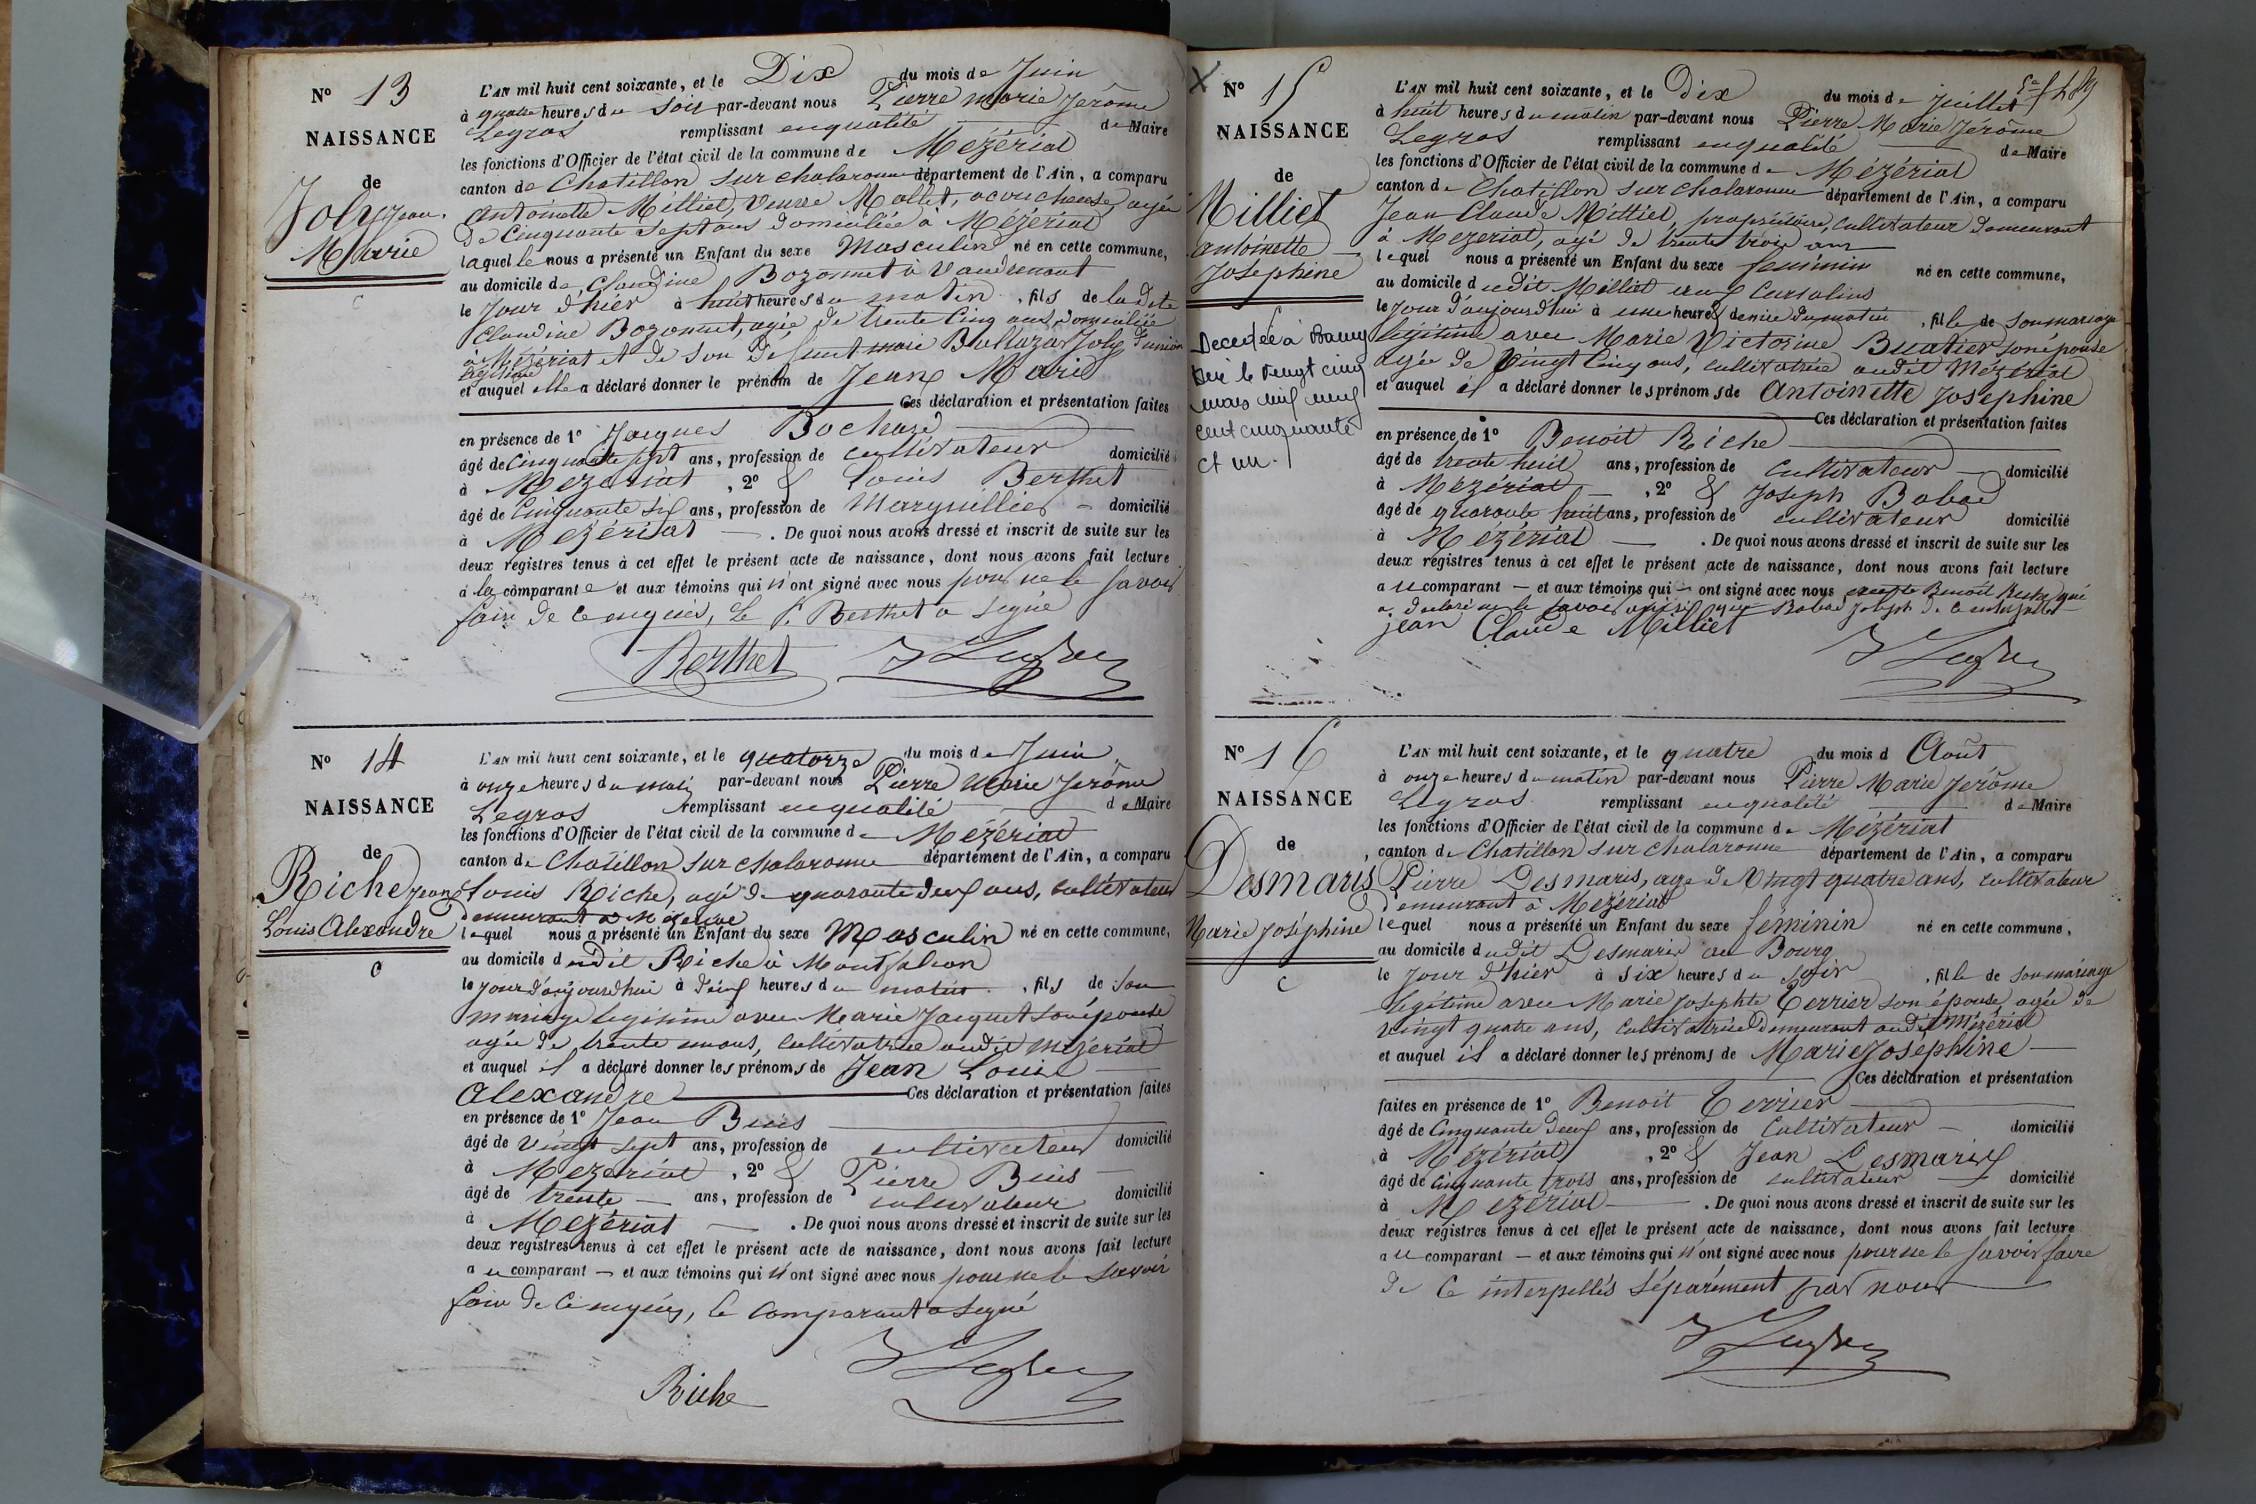 N° 13
NAISSANCE
de
Joly Jean
Marie
L'AN mil huit cent soixante, et le Dix du mois de Juin
à quatre heures du soir par-devant nous Pierre Marie Jérôme
Legros remplissant en qualité de Maire
les fonctions d'Officier de l'état civil de la commune de Mézériat
canton de Chatillon sur chalaronne département de l'Ain, a comparu
Antoinette Milliet, Veuve Mallet, acoucheuse, agée
de Cinquante sept ans domiciliée à Mézériat
laquelle nous a présenté un Enfant du sexe Masculin né en cette commune,
au domicile de Claudine Bozonnet à
le Jour d'hier à huit heures du matin, fils de ladite
Claudine Bozonnet, agée de trente Cinq ans, domiciliée
à Mézériat et de son défunt mari Baltazar Joly d'union
légitime
et auquel elle a déclaré donner le prénom de Jean Marie
Ces déclaration et présentation faites
en présence de 1° Jacques Bochard
âgé de Cinquante sept ans, profession de cultivateur domicilié
à Mézériat, 2° & Louis Berthet
âgé de Cinquante six ans, profession de Marguillier domicilié
à Mézériat. De quoi nous avons dressé et inscrit de suite sur les
deux registres tenus à cet effet le présent acte de naissance, dont nous avons fait lecture
à la comparante et aux témoins qui n'ont signé avec nous pour ne le savoir
faire de ce enquis, le S. Berthet a signé
Berthet J Legros
N° 14
NAISSANCE
de
Riche Jean
Louis Alexandre
L'AN mil huit cent soixante, et le quatorze du mois de Juin
à onze heures du matin par-devant nous Pierre Marie Jérôme
Legros remplissant en qualité de Maire
les fonctions d'Officier de l'état civil de la commune de Mézériat
canton de Chatillon sur chalaronne département de l'Ain, a comparu
Louis Riche, agé de quarante deux ans, cultivateur
demeurant à Mézériat
lequel nous a présenté un Enfant du sexe Masculin né en cette commune,
au domicile dudit Riche à Montfalcon
le jour d'aujourdhui à deux heures du matin, fils de son
mariage légitime avec Marie Jacquet son épouse
agée de trente un ans, cultivatrice audit Mézériat
et auquel il a déclaré donner les prénoms de Jean Louis
Alexandre Ces déclaration et présentation faites
en présence de 1° Jean Buis
âgé de Vingt sept ans, profession de cultivateur domicilié
à Mézériat, 2° & Pierre Buis
âgé de trente ans, profession de cultivateur domicilié
à Mézériat. De quoi nous avons dressé et inscrit de suite sur les
deux registres tenus à cet effet le présent acte de naissance, dont nous avons fait lecture
au comparant et aux témoins qui n'ont signé avec nous pour ne le savoir
faire de ce enquis, le comparant a signé
J Legros
Riche
N° 15
NAISSANCE
de
Milliet
antoinette
Joséphine
Decedée à
le vingt cinq
mars mil neuf
cent cinquante
et un.
L'AN mil huit cent soixante, et le Dix du mois de Juillet
à huit heures du matin par-devant nous Pierre Marie Jérôme
Legros remplissant en qualité de Maire
les fonctions d'Officier de l'état civil de la commune de Mézériat
canton de Chatillon sur chalaronne département de l'Ain, a comparu
Jean Claude Milliet, propriétaire, cultivateur demeurant
à Mezeriat, agé de trente trois ans
lequel nous a présenté un Enfant du sexe féminin né en cette commune,
au domicile dudit Milliet aux Cursalins
le Jour d'aujourd'hui à une heure & demie du matin, fille de son mariage
légitime avec Marie Victorine Buatier son épouse
agée de Vingt Cinq ans, cultivatrice audit Mézériat
et auquel il a déclaré donner les prénoms de Antoinette Joséphine
Ces déclaration et présentation faites
en présence de 1° Benoît Riche
âgé de trente huit ans, profession de cultivateur domicilié
à Mézériat, 2° & Joseph Bobad
âgé de quarante huit ans, profession de cultivateur domicilié
à Mézériat. De quoi nous avons dressé et inscrit de suite sur les
deux registres tenus à cet effet le présent acte de naissance, dont nous avons fait lecture
au comparant et aux témoins qui ont signé avec nous excepté Benoît Riche qui
a déclaré ne le savoir ainsi que Bobad Joseph de ce
jean Claude Milliet
J Legros
N° 16
NAISSANCE
de
Desmaris
Marie Joséphine
L'AN mil huit cent soixante, et le quatre du mois d Août
à onze heures du matin par-devant nous Pierre Marie Jérôme
Legros remplissant en qualité de Maire
les fonctions d'Officier de l'état civil de la commune de Mézériat
canton de Chatillon sur chalaronne département de l'Ain, a comparu
Pierre Desmaris, agé de Vingt quatre ans, cultivateur
demeurant à Mézériat
lequel nous a présenté un Enfant du sexe féminin né en cette commune,
au domicile dudit Desmaris au Bourg
le Jour d'hier à six heures du soir, fille de son mariage
légitime avec Marie Josephte Terrier son épouse, agée de
vingt quatre ans, cultivatrice demeurant audit Mézériat
et auquel il a déclaré donner les prénoms de Marie Joséphine
Ces déclaration et présentation
faites en présence de 1° Benoit Terrier
âgé de Cinquante deux ans, profession de Cultivateur domicilié
à Mézériat, 2° & Jean Desmaris
âgé de Cinquante trois ans, profession de cultivateur domicilié
à Mézériat. De quoi nous avons dressé et inscrit de suite sur les
deux registres tenus à cet effet le présent acte de naissance, dont nous avons fait lecture
au comparant et aux témoins qui n'ont signé avec nous pour ne le savoir faire
de ce interpellés séparément par nous
J Legros